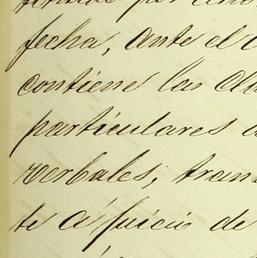 fecha, ante el
contiene las
particulares
verbales; tran
te á juicio de